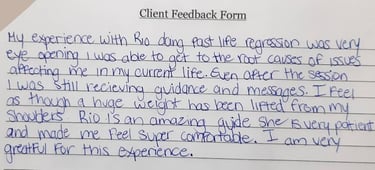 Client Feedback Form
My experience with Rio doing past life regression was very
eye opening I was able to get to the root causes of issues
affecting me in my current life. Even after the session
I was still recieving guidance and messages. I feel
as though a huge weight has been lifted from my
shoulders Rio is an amazing guide she is very patient
and made me feel super comfortable. I am very
greatful for this experience.